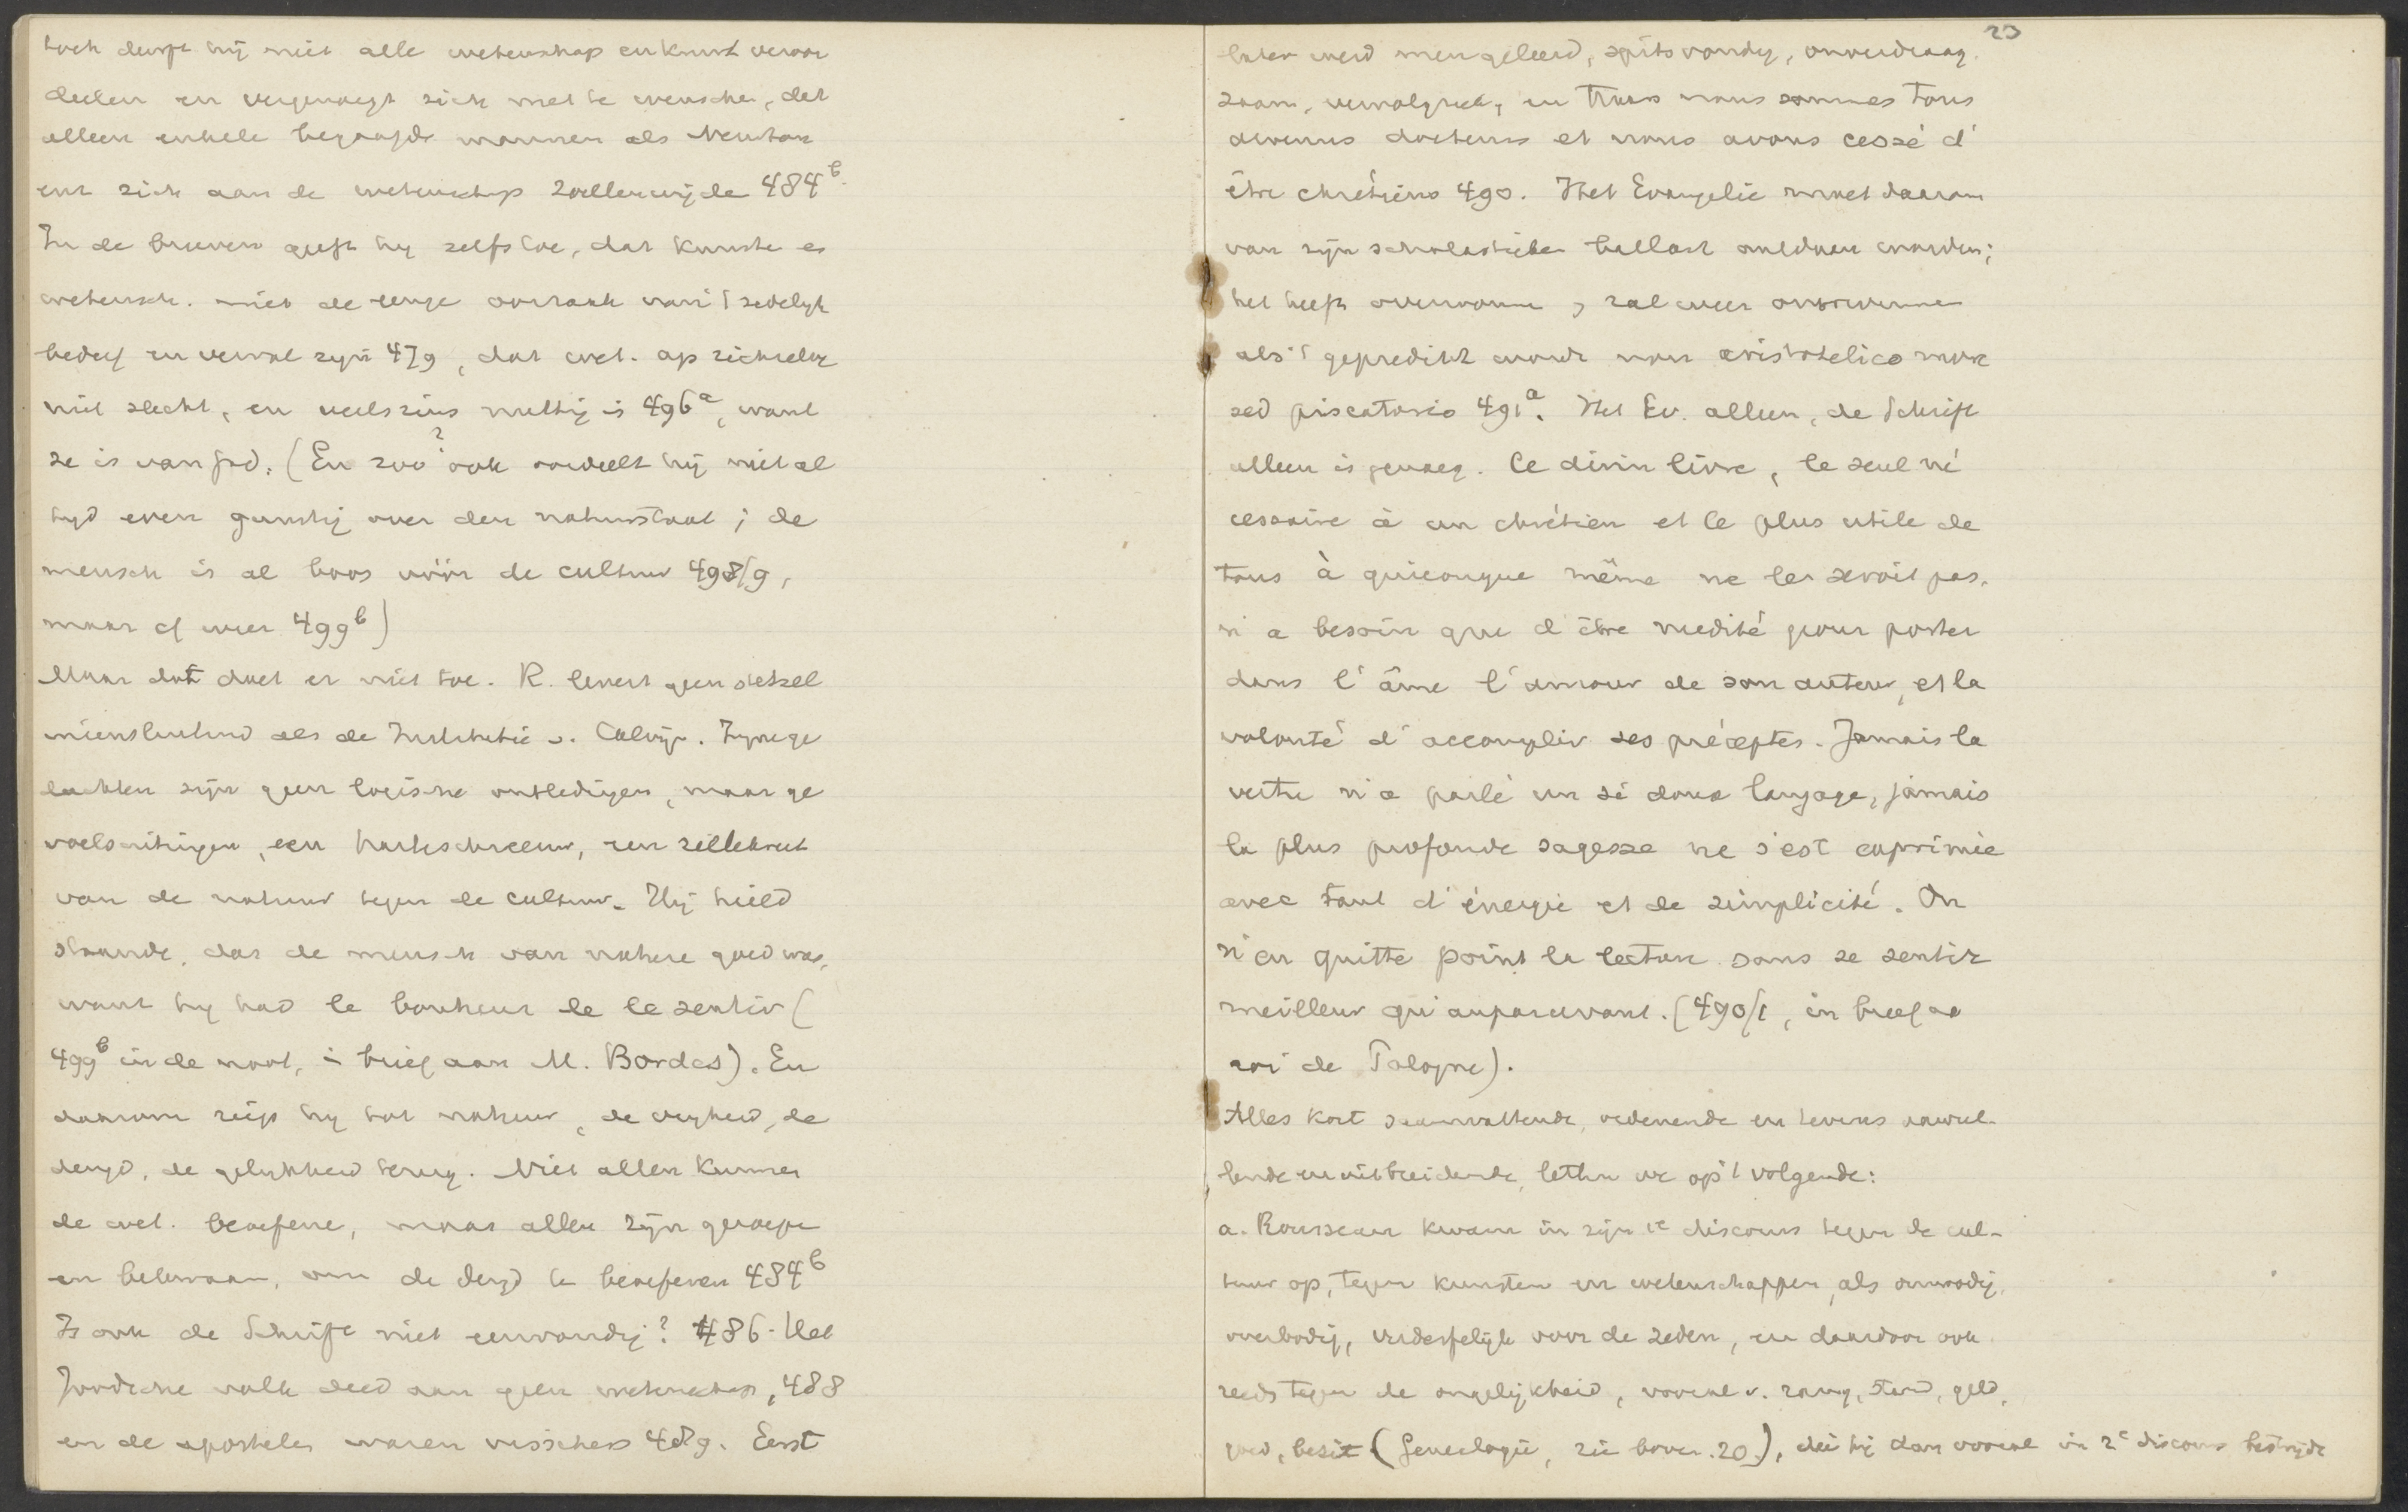 toch durft hij niet alle wetenschap en kunst veroor
deelen en vergenoegt zich met te wenschen, dat
alleen enkele begaafde mannen als Newton
enz zich aan de wetenschap zullen wijde 484b.
In de brieven geeft hij zelfs toe, dat kunste en
wetensch. niet de eenige oorzaak van 't zedelijk
bederf en verval zijn 479, dat wet. op zichzelve
niet slecht, en veelszins nuttig is 496a, want
ze is van God. (En zoo? ook oordeelt hij niet al
tijd even gunstig over den natuurstaat; de
mensch is al boos vóór de cultuur 498/9,
maar cf weer 499b)
Maar dat doet er niet toe. R. levert geen stelsel
minsluitend als de Institutie v. Calvijn. Zijne ge
dachten zijn geen logische ontledingen, maar ge
voelsuitingen, een hartschreeuw, een zielekreet
van de natuur tegen de cultuur. Hij hield
staande, dat de mensch van nature goed was,
want hij had le bonheur de le sentir (
499b in de noot, in brief aan M. Bordes). En
daarom riep hij tot natuur, de vrijheid, de
deugd, de gelijkheid terug. Niet allen kunnen
de wet. beoefene, maar allen zijn geroepe
en bekwaam, om de deugd te beoefenen 484b
Is ook de Schrift niet eenvoudig? 486. Het
Joodsche volk deed aan geen wetenschap, 488
en de apostelen waren visschers 489. Eerst
23
later werd men geleerd, spitsvondig, onverdraag-
zaam, vervolgziek, en nous sommes tous
devenus docteurs et nous avons cessé d'
être chrétiens 490. Het Evangelie moet daarom
van zijn scholastieken ballast ontdaan worden;
het heeft overwonne, zal weer overwinnen
als 't gepredikt wordt non aristotelico more
sed piscatorio 491a. Het Ev. alleen, de Schrift
alleen is genoeg. Ce divin livre, le seul né
cessaire à un chrétien et le plus utile de
tous à quiconque même ne le seroit pas,
n'a besoin que d'être medité pour porter
dans l'âme l'amour de son auteur, et la
volonté d'accomplir ses préceptes. Jamais la
vertu n'a parlé un si doux langage, jamais
la plus profonde sagesse ne s'est exprimée
avec tant d'énergie et de simplicité. On
n'en quitte point la lecture sans se sentir
meilleur qu'auparavant. (490/1, in brief aa
roi de Pologne).
Alles kort saamvattende, ordenende en tevens aanvul-
lende en uitbreidende, letten we op 't volgende:
a. Rousseau kwam in zijn 1e discours tegen de cul-
tuur op, tegen kunsten en wetenschappen, als onnoodig,
overbodig, verderfelijk voor de zeden, en daardoor ook
reeds tegen de ongelijkheid, vooral v. rang, stand, geld,
goed, bezit (Genealogie, zie boven. 20), die hij dan vooral in 2e discours bestrijdt